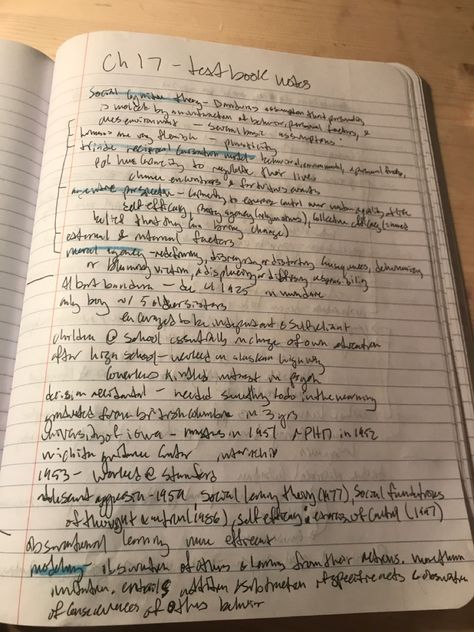 Ch 17 - textbook notes
Social Cognitive theory - Bandura's assumption that personality
is molded by an interaction of behavior, personal factors, &
ones environment - several basic assumptions:
humans are very flexible - plasticity
triadic reciprocal causation model: behavioral, environmental, & personal factors,
ppl have capacity to regulate their lives
chance encounters & fortuitous events
agentive perspective - capacity to exercise control over nature & quality of life
self efficacy, proxy agency (), collective efficacy (shared
belief that they can bring change)
external & internal factors
moral agency - redefining, disregarding or distorting consequences, dehumanizing
or blaming victim, & displacing or diffusing responsibility
Albert bandura - dec 4 1925 in mundare
only boy w/ 5 older sisters
encouraged to be independent & self reliant
children @ school essentially in charge of own education
after high school - worked on alaskan highway
coworkers kindled interest in psych
decision accidental - needed something to do in the morning
graduated from british columbia in 3 yrs
university of iowa - masters in 1951 & PHD in 1952
wichita guidance center internship
1953 - worked @ stanford
adolescent aggression - 1959 Social learning theory (1977), Social foundations
of thought & action (1986), self efficacy: exercise of control (1997)
observational learning more efficient
modeling - observation of others & learning from their actions. more than
imitation, entails addition & subtraction & observation
of consequences of others behavior